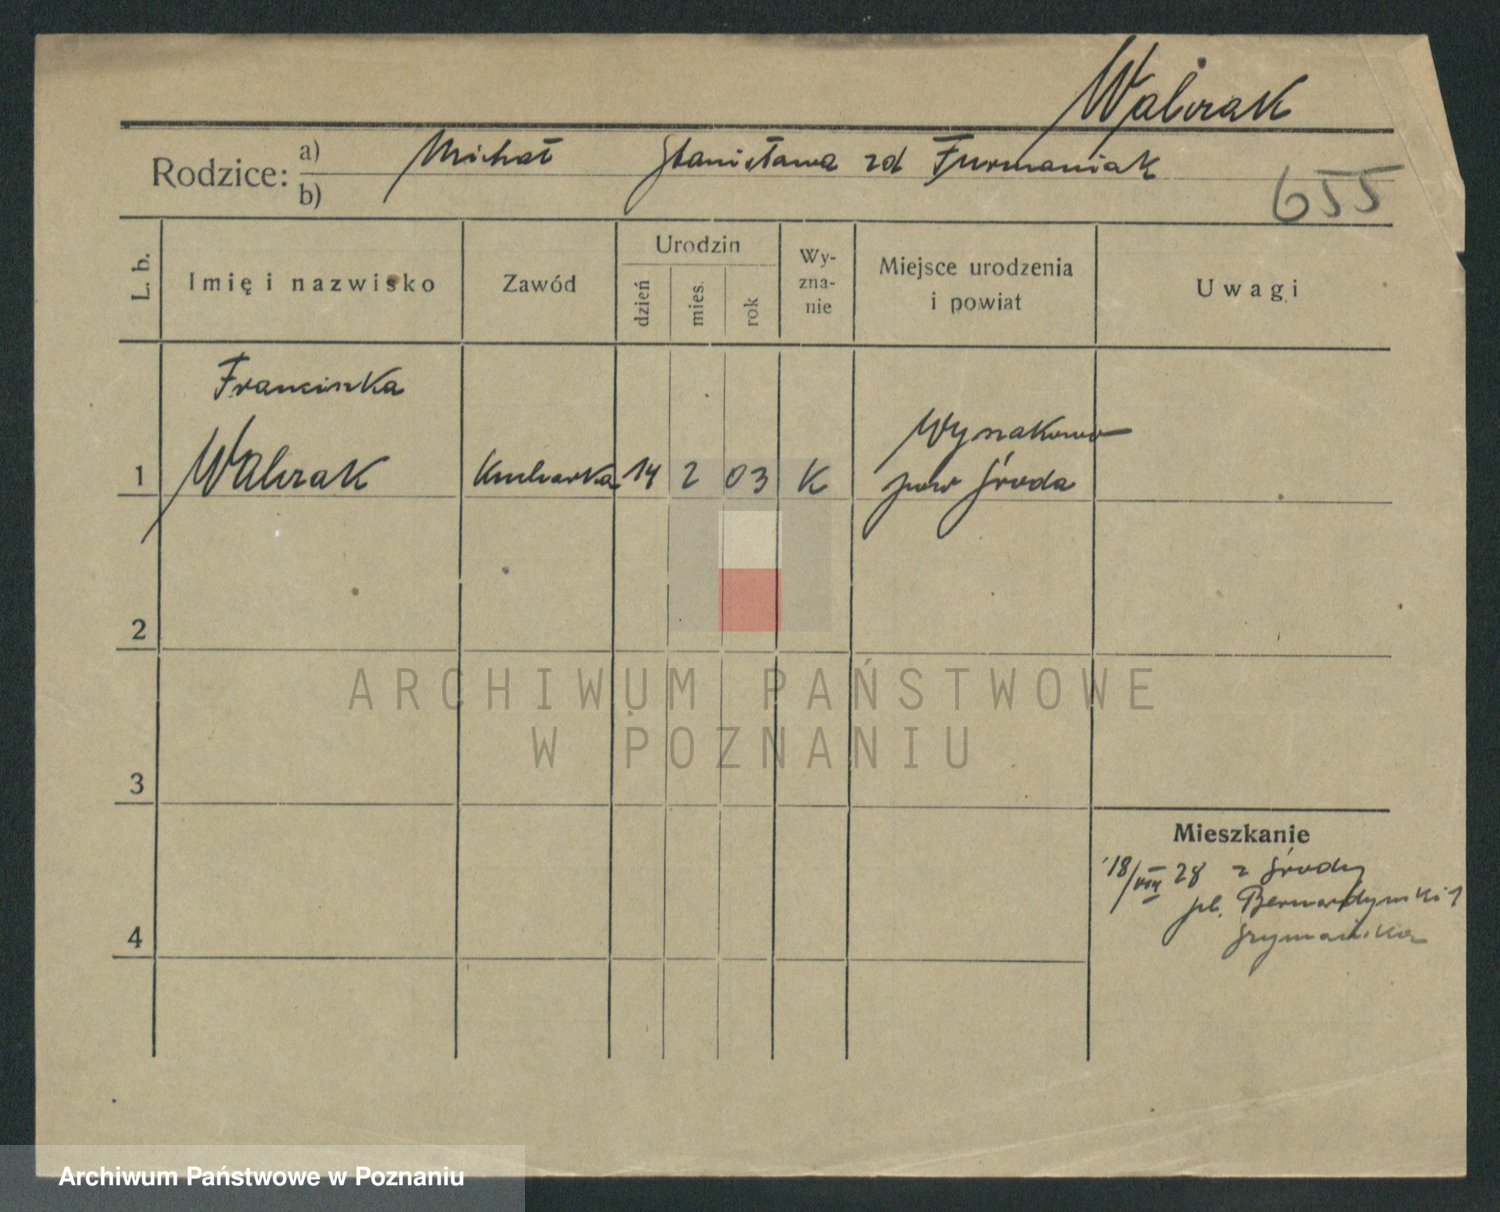 Walczak
Rodzice: a) Michał Stanisława zd Furmaniak
b)
655
L. b. Imię i nazwisko Zawód Urodzin dzień mies. rok Wy-zna-nie Miejsce urodzenia i powiat Uwagi
Franciszka
Wyszakowo
1 Walczak Kucharka 14 2 03 K pow Środa
2
ARCHIWUM PAŃSTWOWE
W POZNANIU
3
Mieszkanie
18/VIII 28 z Środy
pl. Bernardyński 1
4
Archiwum Państwowe w Poznaniu